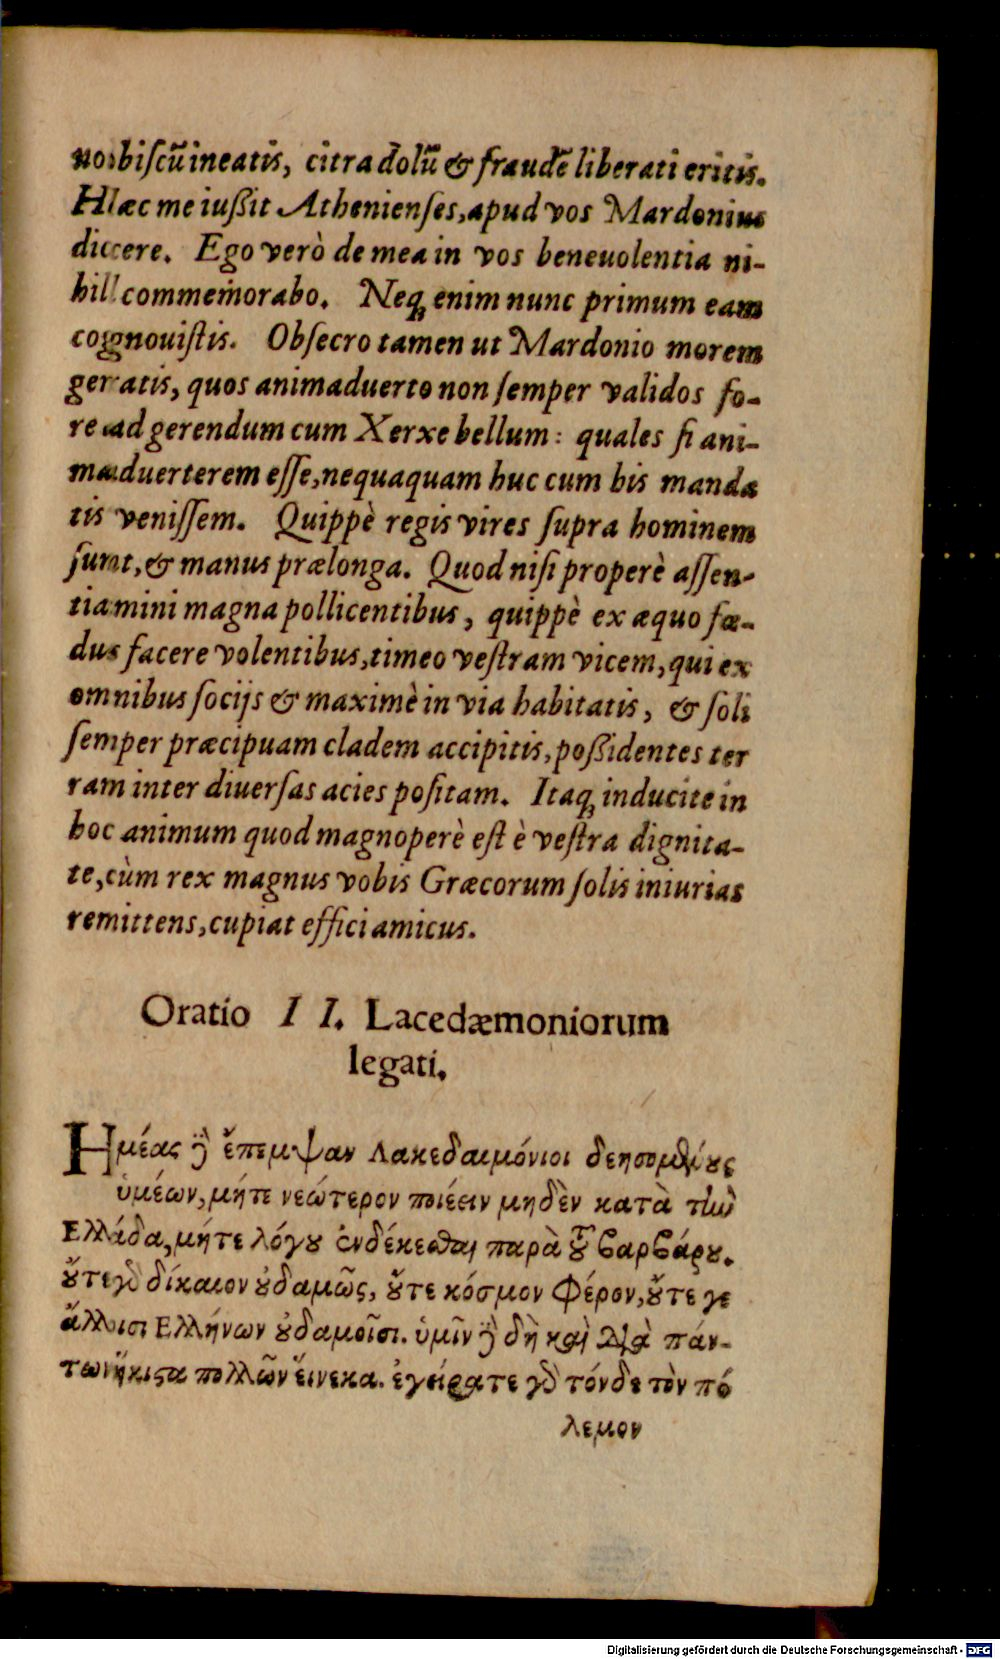 nobiscũ ineatis, citra dolũ & fraudẽ liberati eritis.
Hæc me iußit Athenienses, apud vos Mardonius
dicere. Ego verò de mea in vos beneuolentia ni-
hil commemorabo. Neq; enim nunc primum eam
cognouistis. Obsecro tamen ut Mardonio morem
geratis, quos animaduerto non semper validos fo-
re ad gerendum cum Xerxe bellum: quales si ani-
maduerterem esse, nequaquam huc cum his manda
tis venissem. Quippè regis vires supra hominem
sunt, & manus prælonga. Quod nisi properè assen-
tiamini magna pollicentibus, quippè ex æquo fœ-
dus facere volentibus, timeo vestram vicem, qui ex
omnibus socijs & maximè in via habitatis, & soli
semper præcipuam cladem accipitis, poßidentes ter
ram inter diuersas acies positam. Itaq; inducite in
hoc animum quod magnoperè est è vestra dignita-
te, cùm rex magnus vobis Græcorum solis iniurias
remittens, cupiat effici amicus.
Oratio II. Lacedæmoniorum
legati.
Ημέας δὲ ἔπεμψαν Λακεδαιμόνιοι δεησομένους
ὑμέων, μήτε νεώτερον ποιέειν μηδὲν κατὰ τὴν
Ελλάδα, μήτε λόγου ἐνδέκεσθαι παρὰ τοῦ βαρβάρου.
οὔτε γὰρ δίκαιον οὐδαμῶς, οὔτε κόσμον φέρον, οὔτε γε
ἄλλοισι Ελλήνων οὐδαμοῖσι. ὑμῖν δὲ δὴ καὶ διὰ πάν-
των ἥκιστα πολλῶν εἵνεκα. ἐγείρατε γὰρ τόνδε τὸν πό
λεμον
Digitalisierung gefördert durch die Deutsche Forschungsgemeinschaft - DFG